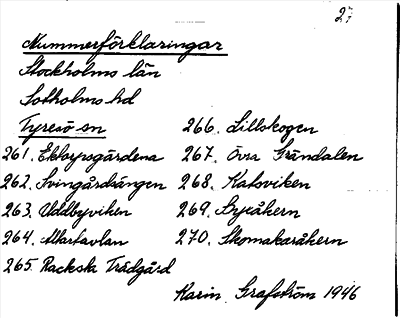 27
Nummerförklaringar
Stockholms län
Sotholms hd
Tyresö sn
261. Ektorpsgärdena
262. Svingårdsängen
263. Uddbyviken
264. Martavlan
265. Rackska Trädgård
266. Lillskogen
267. Övra Grändalen
268. Kalvviken
269. Bryåkern
270. Skomakaråkern
Karin Grafström 1946